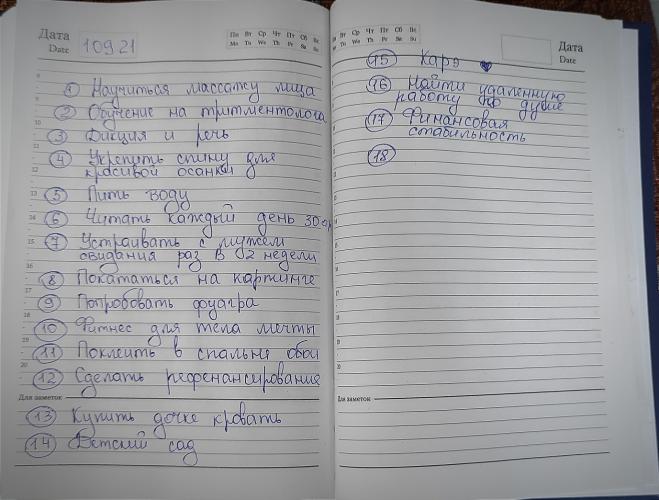 Дата
Date
10921
Пн Вт Ср Чт Пт Сб Вс
Mo Tu We Th Fr Sa Su
1 Научиться массажу лица
2 Обучение на тритментолога
3 Дикция и речь
4 Укрепить спину для
красивой осанки
5 Пить воду
6 Читать каждый день 30
7 Устраивать с мужем
свидания раз в 2 недели
8 Покататься на картинге
9 Попробовать фуагра
10 Фитнес для тела мечты
11 Поклеить в спальне обои
12 Сделать рефенансирование
Для заметок
13 Купить дочке кровать
14 Детский сад
Пн Вт Ср Чт Пт Сб Вс
Mo Tu We Th Fr Sa Su
Дата
Date
15 Карэ
16 Найти удаленную
работу по душе
17 Финансовая
стабильность
18
Для заметок